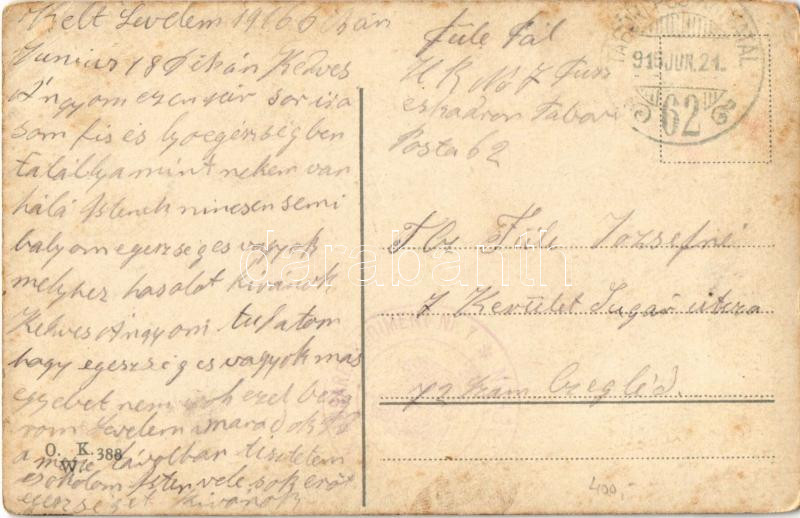 Kelt Levelem 1916 6 ikán
Junius 18 Dikán Kedves
Ángyom ezen pár sor irá
som fris és jo egésségben
talállya mint nekem van
hálá Istenek nincsen semi
balyom egességes vagyok
melyhez hasolot kivánok
Kedves Ángyom tudatom
hogy egességes vagyok más
egyebet nem irok ezel bezá
rom Levelem maradok
a mesze távolban tisztelem
csokolom Isten vele sok erőt
egességet kivánok
O. K. W. 388
Füle Pál
H. K. No 7
eskadron Tabori
Posta 62
TÁBORI POSTAHIVATAL
916 JUN. 21.
62
Füle Józsefné
7 Kerület Sugár utcza
72 szám Czegléd
REGIMENT Nr. 7
400,-
darabanth